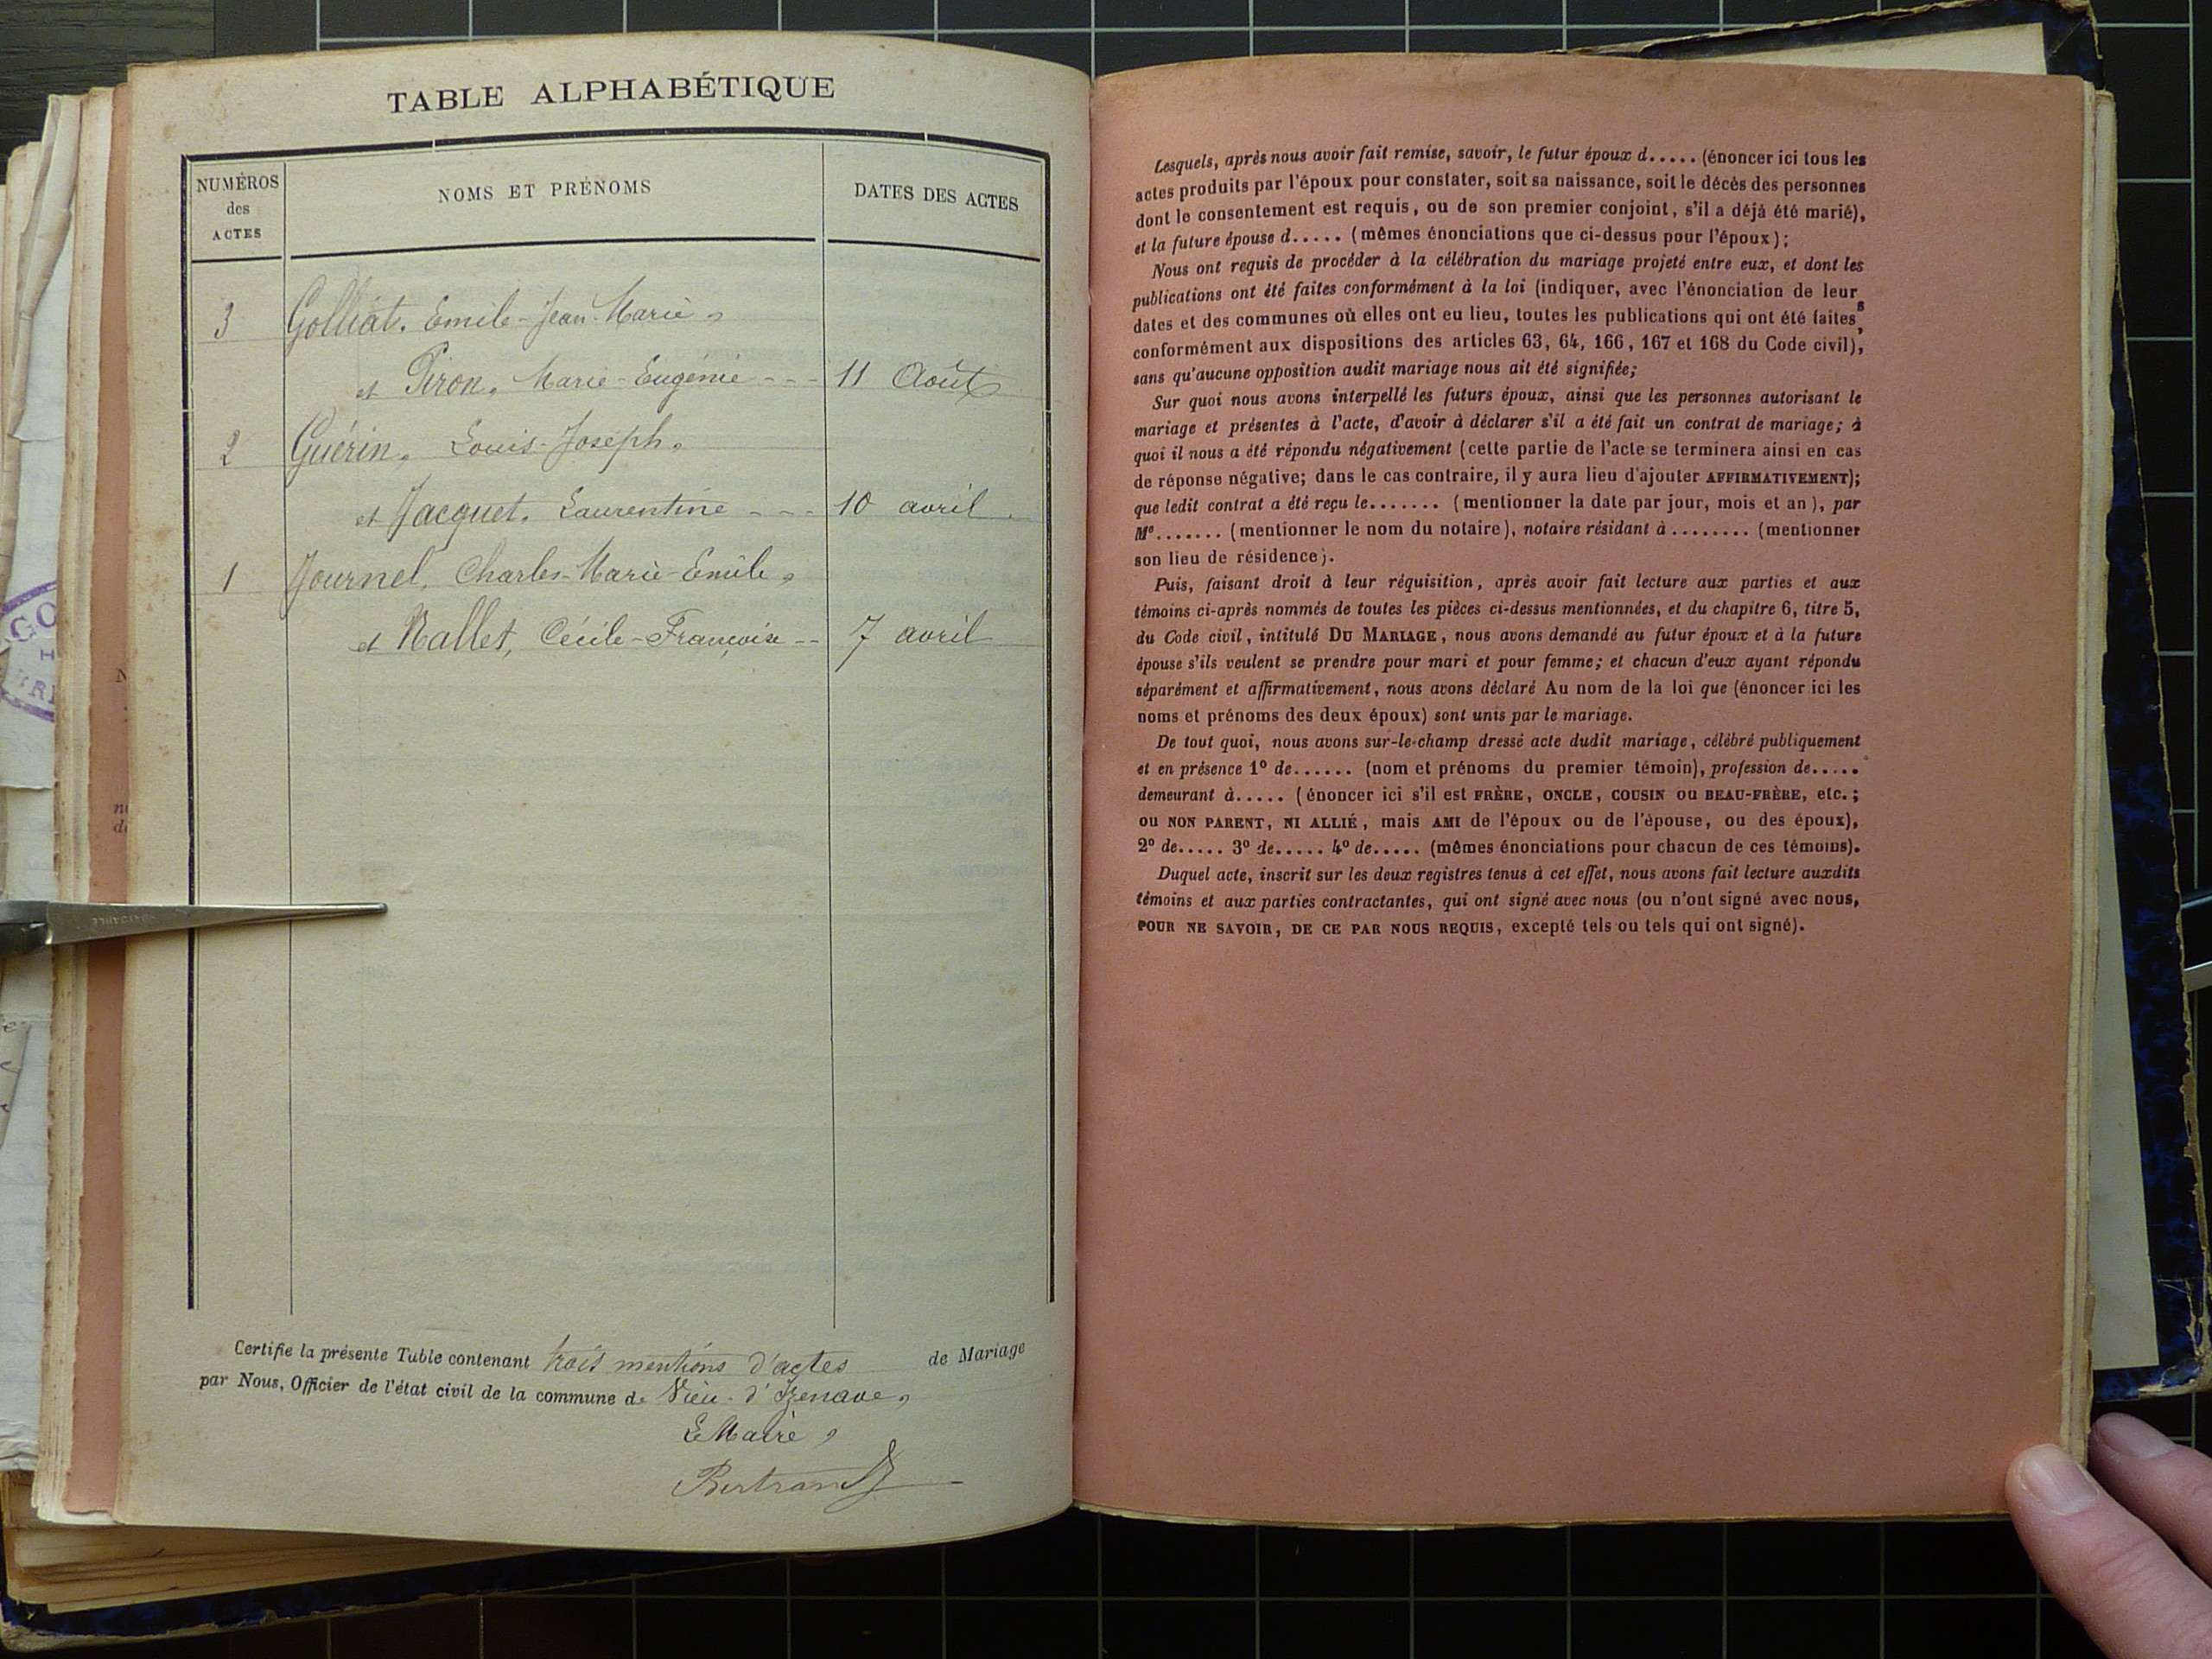 TABLE ALPHABÉTIQUE
NUMÉROS
des
ACTES
NOMS ET PRÉNOMS
DATES DES ACTES
3 Golliat, Emile-Jean-Marie,
et Piron, Marie-Eugénie - - - 11 Août
2 Guérin, Louis-Joseph,
et Jacquet, Laurentine - - - 10 avril
1 Journel, Charles-Marie-Emile,
et Rallet, Cécile-Françoise -- 7 avril
Certifie la présente Table contenant trois mentions d'actes de Mariage
par Nous, Officier de l'état civil de la commune de Vieu-d'Izenave,
Le Maire,
Bertrand
Lesquels, après nous avoir fait remise, savoir, le futur époux d..... (énoncer ici tous les
actes produits par l'époux pour constater, soit sa naissance, soit le décès des personnes
dont le consentement est requis, ou de son premier conjoint, s'il a déjà été marié),
et la future épouse d..... (mêmes énonciations que ci-dessus pour l'époux);
Nous ont requis de procéder à la célébration du mariage projeté entre eux, et dont les
publications ont été faites conformément à la loi (indiquer, avec l'énonciation de leurs
dates et des communes où elles ont eu lieu, toutes les publications qui ont été faites,
conformément aux dispositions des articles 63, 64, 166, 167 et 168 du Code civil),
sans qu'aucune opposition audit mariage nous ait été signifiée;
Sur quoi nous avons interpellé les futurs époux, ainsi que les personnes autorisant le
mariage et présentes à l'acte, d'avoir à déclarer s'il a été fait un contrat de mariage; à
quoi il nous a été répondu négativement (cette partie de l'acte se terminera ainsi en cas
de réponse négative; dans le cas contraire, il y aura lieu d'ajouter AFFIRMATIVEMENT);
que ledit contrat a été reçu le....... (mentionner la date par jour, mois et an), par
Me....... (mentionner le nom du notaire), notaire résidant à ........ (mentionner
son lieu de résidence).
Puis, faisant droit à leur réquisition, après avoir fait lecture aux parties et aux
témoins ci-après nommés de toutes les pièces ci-dessus mentionnées, et du chapitre 6, titre 5,
du Code civil, intitulé DU MARIAGE, nous avons demandé au futur époux et à la future
épouse s'ils veulent se prendre pour mari et pour femme; et chacun d'eux ayant répondu
séparément et affirmativement, nous avons déclaré Au nom de la loi que (énoncer ici les
noms et prénoms des deux époux) sont unis par le mariage.
De tout quoi, nous avons sur-le-champ dressé acte dudit mariage, célébré publiquement
et en présence 1º de...... (nom et prénoms du premier témoin), profession de.....
demeurant à..... (énoncer ici s'il est FRÈRE, ONCLE, COUSIN ou BEAU-FRÈRE, etc.;
ou NON PARENT, NI ALLIÉ, mais AMI de l'époux ou de l'épouse, ou des époux),
2º de..... 3º de..... 4º de..... (mêmes énonciations pour chacun de ces témoins).
Duquel acte, inscrit sur les deux registres tenus à cet effet, nous avons fait lecture auxdits
témoins et aux parties contractantes, qui ont signé avec nous (ou n'ont signé avec nous,
POUR NE SAVOIR, DE CE PAR NOUS REQUIS, excepté tels ou tels qui ont signé).